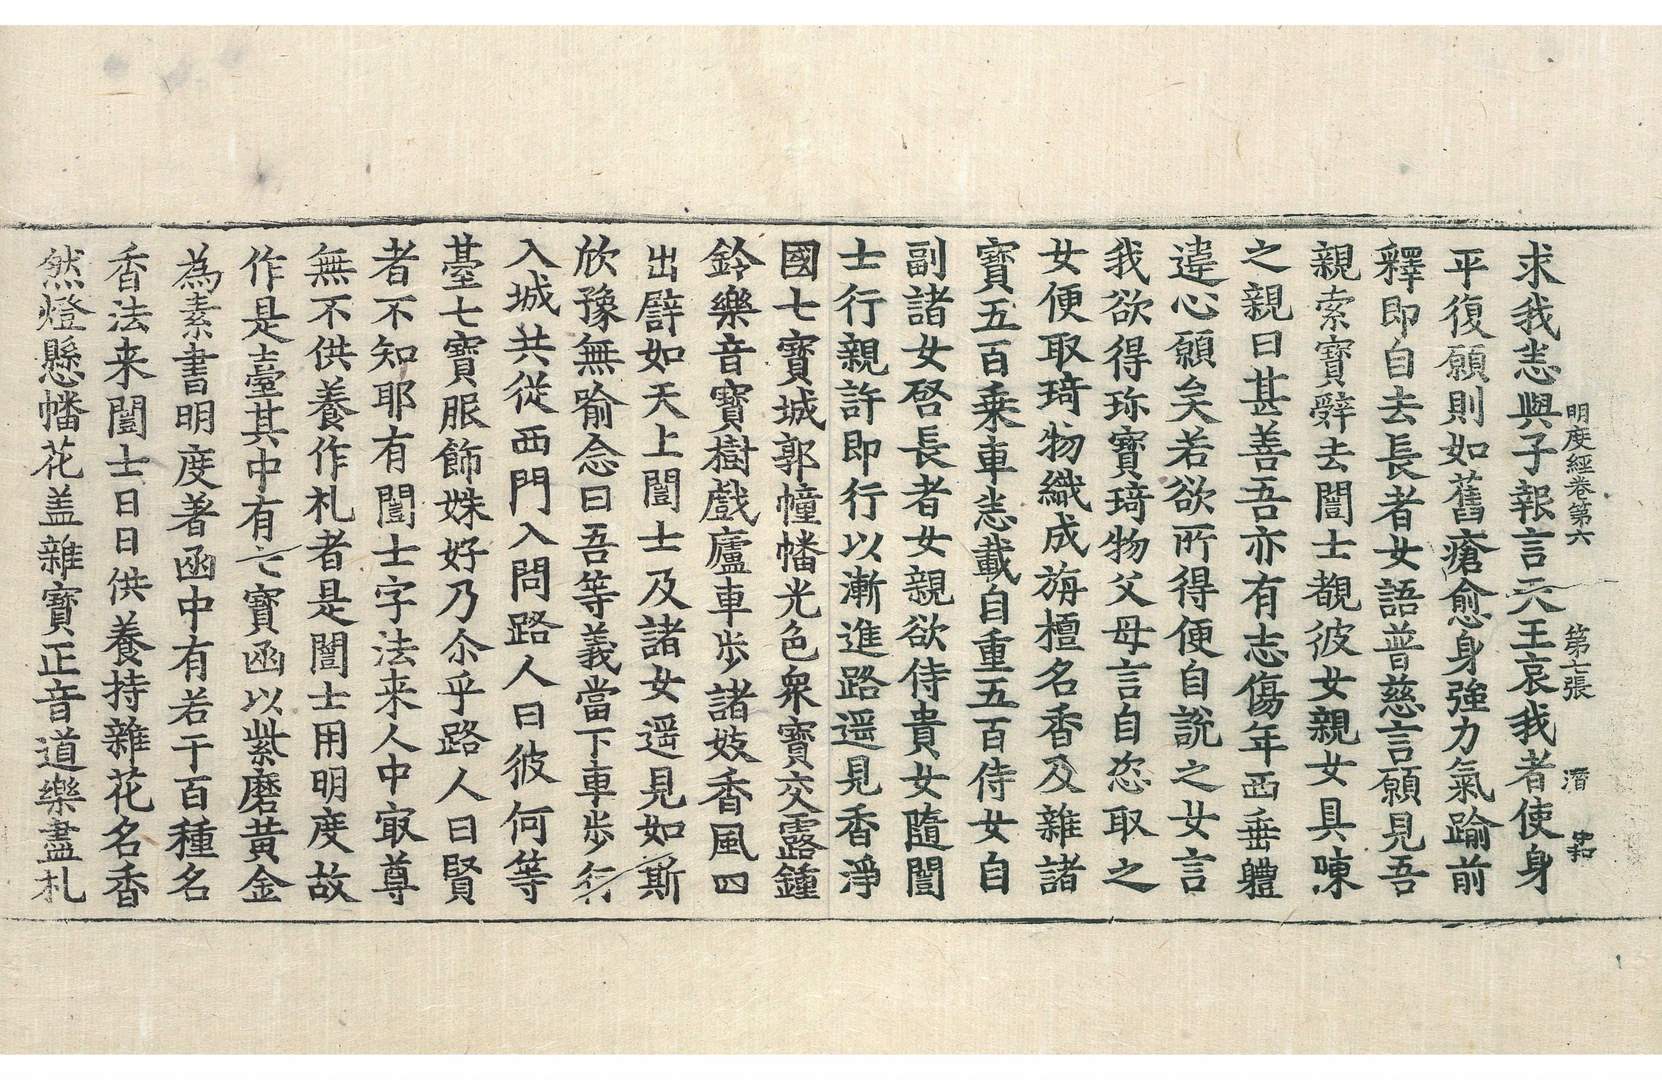 明度經卷第六 第七張 潛
求我恚與子報言天王哀我者使身
平復願則如舊瘡愈身強力氣踰前
釋即自去長者女語普慈言願見吾
親索寶辭去闓士覩彼女親女具陳
之親曰甚善吾亦有志傷年西垂體
違心願矣若欲所得便自說之女言
我欲得珎寶琦物父母言自恣取之
女便取琦物織成旃檀名香及雜諸
寶五百乘車恚載自重五百侍女自
副諸女啓長者女親欲侍貴女隨闓
士行親許即行以漸進路遥見香淨
國七寶城郭幢幡光色衆寶交露鐘
鈴樂音寶樹戲廬車步諸妓香風四
出譬如天上闓士及諸女遥見如斯
欣豫無喻念曰吾等義當下車步行
入城共從西門入問路人曰彼何等
臺七寶服飾姝好乃尒乎路人曰賢
者不知耶有闓士字法来人中㝡尊
無不供養作札者是闓士用明度故
作是臺其中有七寶函以紫磨黃金
為素書明度著函中有若干百種名
香法来闓士日日供養持雜花名香
然燈懸幡花盖雜寶正音道樂盡札